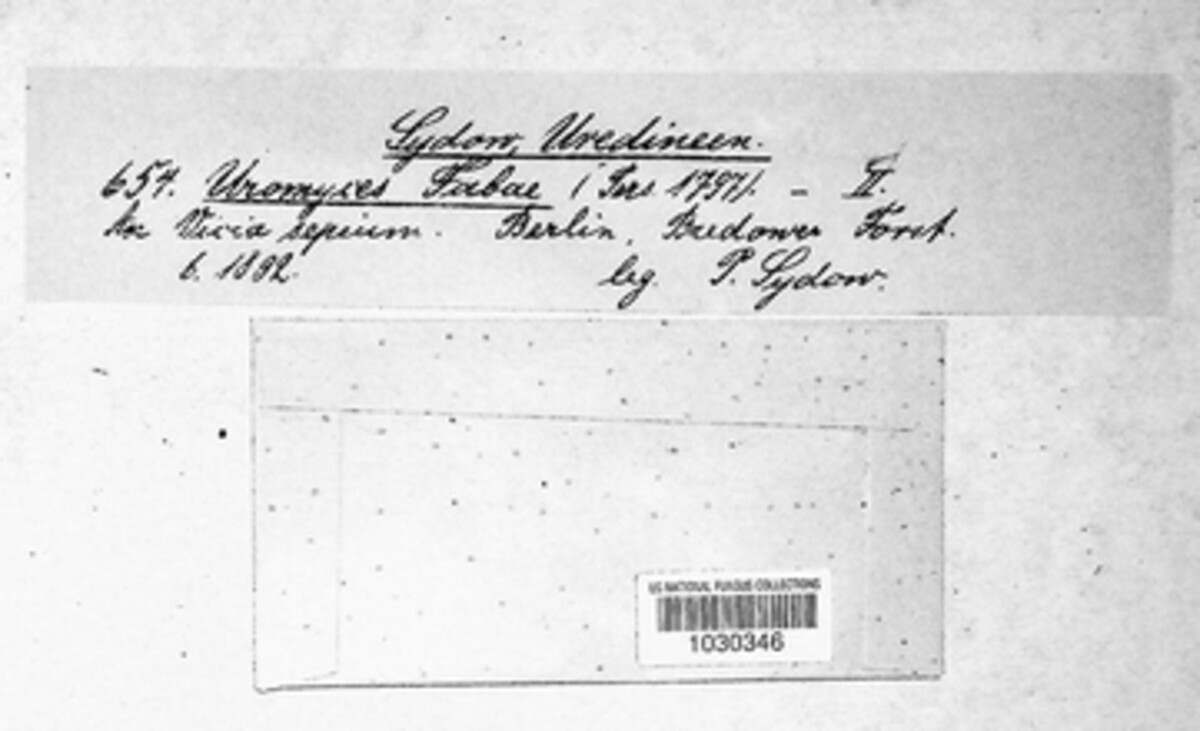 Sydow, Uredineen.
654. Uromyces Fabae (Pers. 1797). – II.
An Vicia sepium. Berlin, Bredower Forst.
6. 1892. leg. P. Sydow.
US NATIONAL FUNGUS COLLECTIONS
1030346